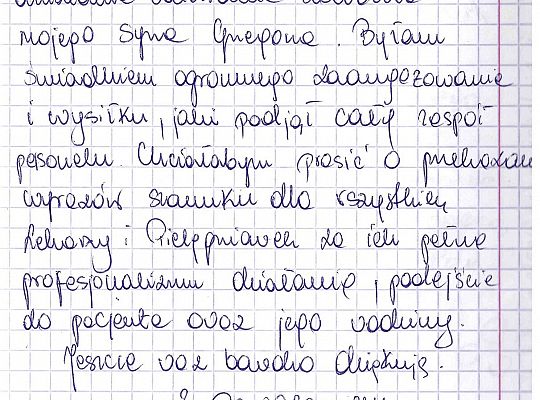 mojego Syna Grzegorza. Byłam
świadkiem ogromnego zaangażowania
i wysiłku, jaki podjął cały zespół
personelu. Chciałabym prosić o przekazanie
wyrazów szacunku dla wszystkich
Lekarzy i Pielęgniarek za ich pełne
profesjonalizmu działanie, podejście
do pacjenta oraz jego rodziny.
Jeszcze raz bardzo dziękuję.